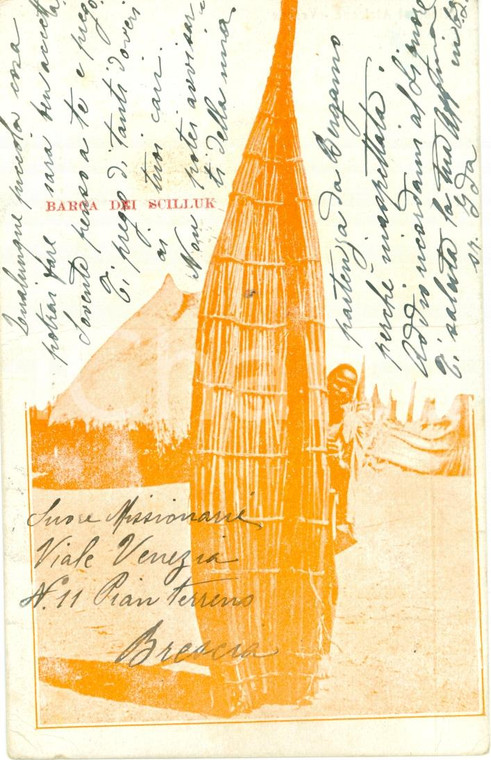 Qualunque piccola cosa
potrai fare sarà ben accetta
Sovente penso a te e prego
Ti prego di tanti doveri
ai tuoi cari.
Non potei avvisar
ti della mia
partenza da Bergamo
perché inaspettata.
Addio ricordami al Signore
Ti saluto la tua Aff. in G.
sr. Ida
BARCA DEI SCILLUK
Suore Missionarie
Viale Venezia
N. 11 Pian terreno
Brescia